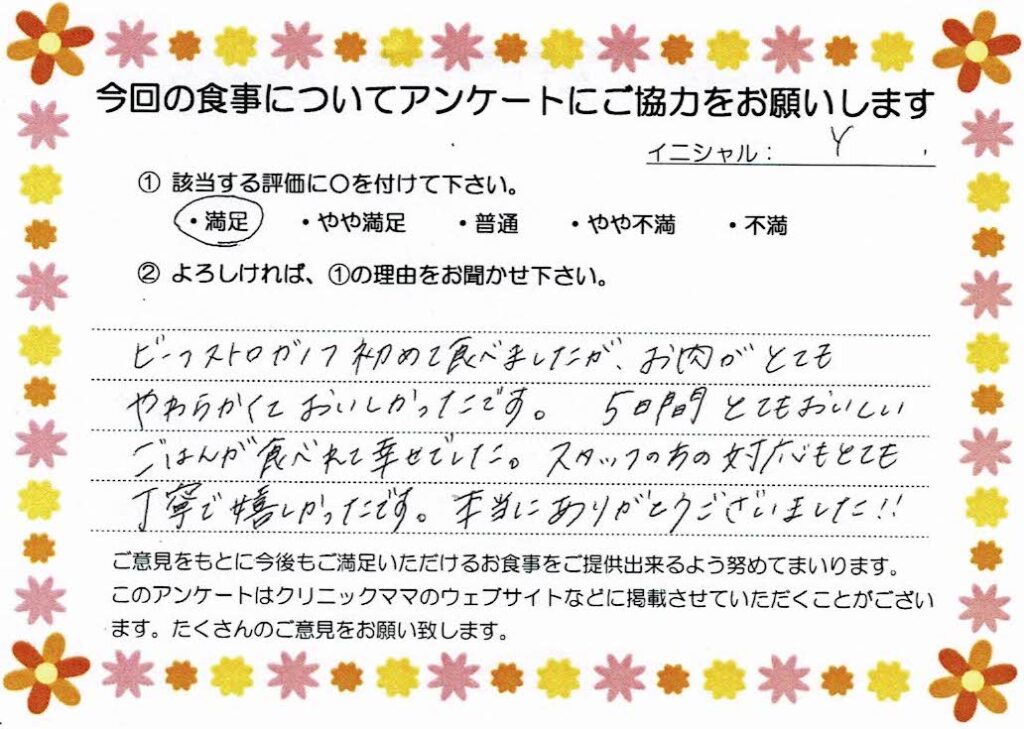 今回の食事についてアンケートにご協力をお願いします
イニシャル： Y
① 該当する評価に〇を付けて下さい。
・満足 ・やや満足 ・普通 ・やや不満 ・不満
② よろしければ、①の理由をお聞かせ下さい。
ビーフストロガノフ初めて食べましたが、お肉がとても
やわらかくておいしかったです。 5日間とてもおいしい
ごはんが食べれて幸せでした。スタッフの方の対応もとても
丁寧で嬉しかったです。本当にありがとうございました!!
ご意見をもとに今後もご満足いただけるお食事をご提供出来るよう努めてまいります。
このアンケートはクリニックママのウェブサイトなどに掲載させていただくことがござい
ます。たくさんのご意見をお願い致します。